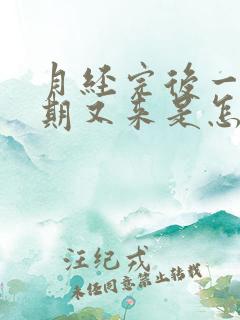 月经完后一
期又来是怎
汪纪戎
未经同意禁止转载